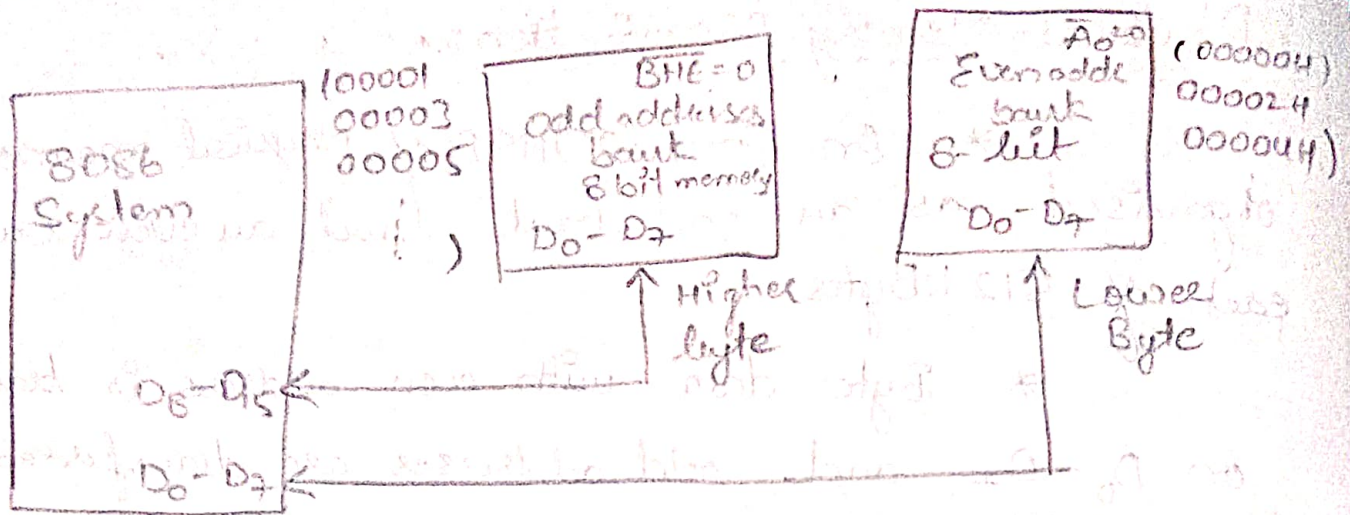 8086
System
(00001
00003
00005
D8-D15
D0-D7
BHE = 0
odd address
bank
8 bit memory
D0-D7
Higher
byte
A0=0
Even adde
bank
8-bit
D0-D7
(00000H)
00002H
00004H)
Lower
Byte